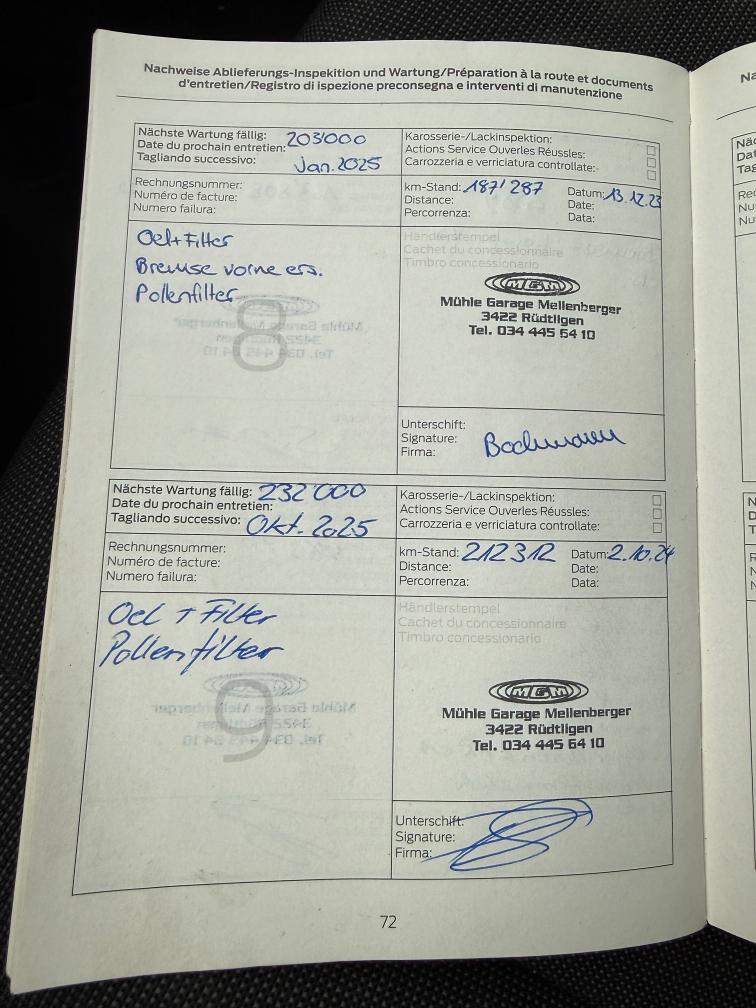 Nachweise Ablieferungs-Inspekition und Wartung/Préparation à la route et documents
d'entretien/Registro di ispezione preconsegna e interventi di manutenzione
Nächste Wartung fällig: 203'000
Date du prochain entretien:
Tagliando successivo: Jan. 2025
Karosserie-/Lackinspektion:
Actions Service Ouverles Réussles:
Carrozzeria e verriciatura controllate:
Rechnungsnummer:
Numéro de facture:
Numero failura:
km-Stand: 187'287 Datum: 13.12.23
Distance: Date:
Percorrenza: Data:
Oel+Filter
Bremse vorne ers.
Pollenfilter
8
Händlerstempel
Cachet du concessionnaire
Timbro concessionario
MGM
Mühle Garage Mellenberger
3422 Rüdtligen
Tel. 034 445 64 10
Unterschift:
Signature:
Firma:
Nächste Wartung fällig: 232'000
Date du prochain entretien:
Tagliando successivo: Okt. 2025
Karosserie-/Lackinspektion:
Actions Service Ouverles Réussles:
Carrozzeria e verriciatura controllate:
Rechnungsnummer:
Numéro de facture:
Numero failura:
km-Stand: 212312 Datum: 2.10.24
Distance: Date:
Percorrenza: Data:
Oel + Filter
Pollenfilter
9
Händlerstempel
Cachet du concessionnaire
Timbro concessionario
MGM
Mühle Garage Mellenberger
3422 Rüdtligen
Tel. 034 445 64 10
Unterschift:
Signature:
Firma:
72